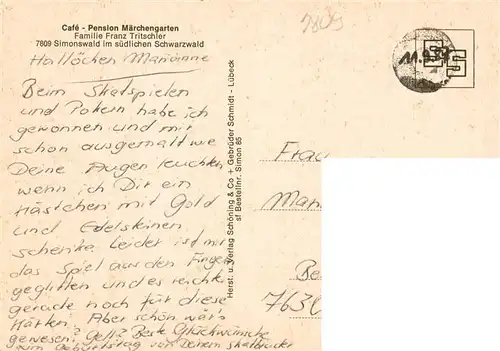 Café - Pension Märchengarten
Familie Franz Tritschler
7809 Simonswald im südlichen Schwarzwald
Hallöchen Marianne
Beim Skatspielen
und Pokern habe ich
gewonnen und mir
schon ausgemalt wie
Deine Augen leuchten
wenn ich Dir ein
Kästchen mit Gold
und Edelsteinen
schenke. Leider ist mir
das Spiel aus den Fingern
geglitten und es reichte
gerade noch für diese
Karten. Aber schön wär's
gewesen? Gell? Beste Glückwünsche
zum Geburtstag von Deinem Skatbruder
Herst. u. Verlag Schöning & Co + Gebrüder Schmidt - Lübeck
sf Bestellnr. Simon 85
7809
Frau
Mar
Be
7630